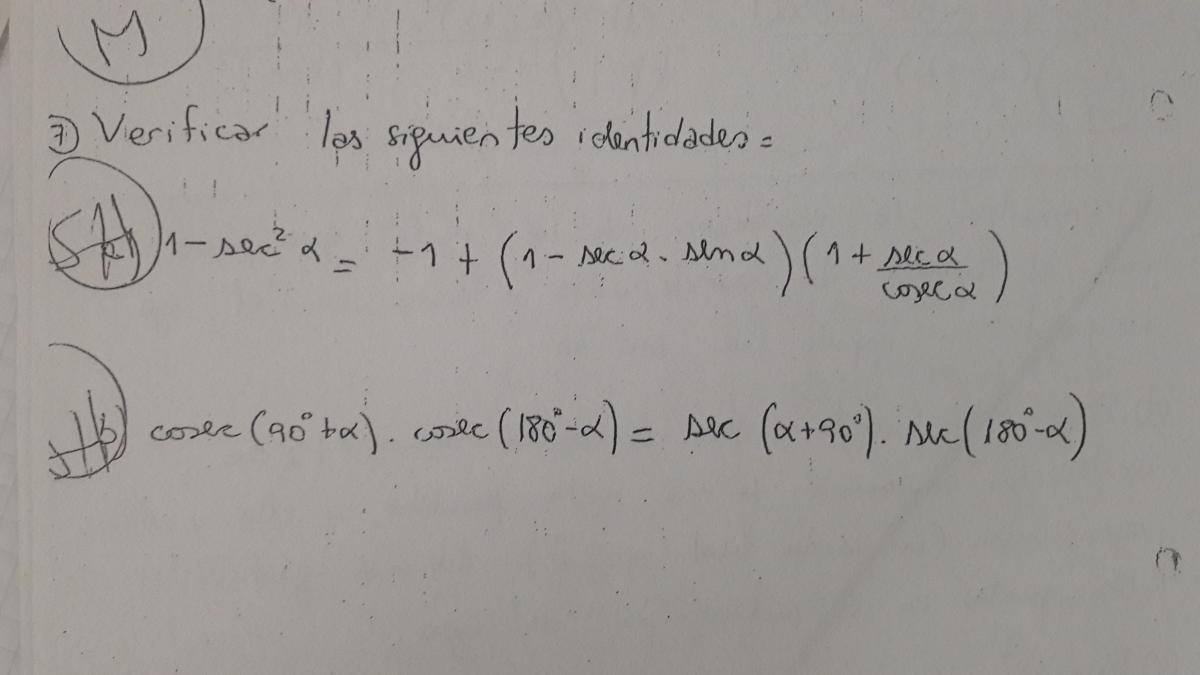 M
7) Verificar las siguientes identidades =
1 - sec² α = -1 + (1 - sec α . sen α) (1 + sec α / cosec α)
b) cosec (90° + α) . cosec (180° - α) = sec (α + 90°) . sec (180° - α)